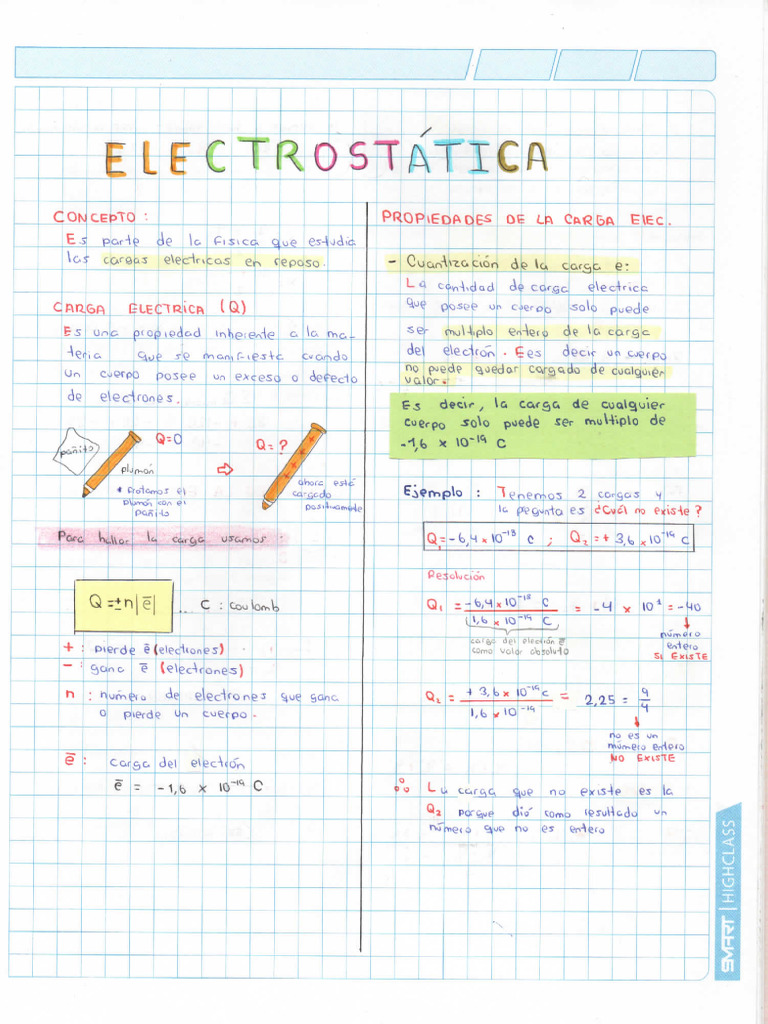 ELECTROSTÁTICA
CONCEPTO :
Es parte de la Fisica que estudia
las cargas electricas en reposo.
CARGA ELECTRICA (Q)
Es una propiedad inherente a la ma-
teria que se manifiesta cuando
un cuerpo posee un exceso o defecto
de electrones.
pañito
Q=0
plumón
* frotamos el
plumón con el
pañito
Q=?
+ + + +
ahora está
cargado
positivamente
Para hallar la carga usamos :
Q = ± n|ē| .. C : coulomb
+ : pierde ē (electrones)
- : gana ē (electrones)
n : numero de electrones que gana
o pierde un cuerpo.
ē : carga del electrón
ē = -1,6 × 10⁻¹⁹ C
PROPIEDADES DE LA CARGA ElEC.
- Cuantización de la carga e:
La cantidad de carga electrica
que posee un cuerpo solo puede
ser multiplo entero de la carga
del electrón. Ees decir un cuerpo
no puede quedar cargado de cualquier
valor.
Es decir, la carga de cualquier
cuerpo solo puede ser multiplo de
-1,6 × 10⁻¹⁹ C
Ejemplo : Tenemos 2 cargas y
la pegunta es ¿Cuál no existe?
Q₁=-6,4×10⁻¹⁸ C ; Q₂=+3,6×10⁻¹⁹ C
Resolución
Q₁ = -6,4×10⁻¹⁸ C / 1,6×10⁻¹⁹ C = -4 × 10¹ = -40
carga del electrón ē
como valor absoluto
número
entero
SI EXISTE
Q₂ = +3,6×10⁻¹⁹ C / 1,6×10⁻¹⁹ = 2,25 = 9/4
no es un
número entero
NO EXISTE
∴ La carga que no existe es la
Q₂ porque dió como resultado un
número que no es entero
SMART | HIGHCLASS